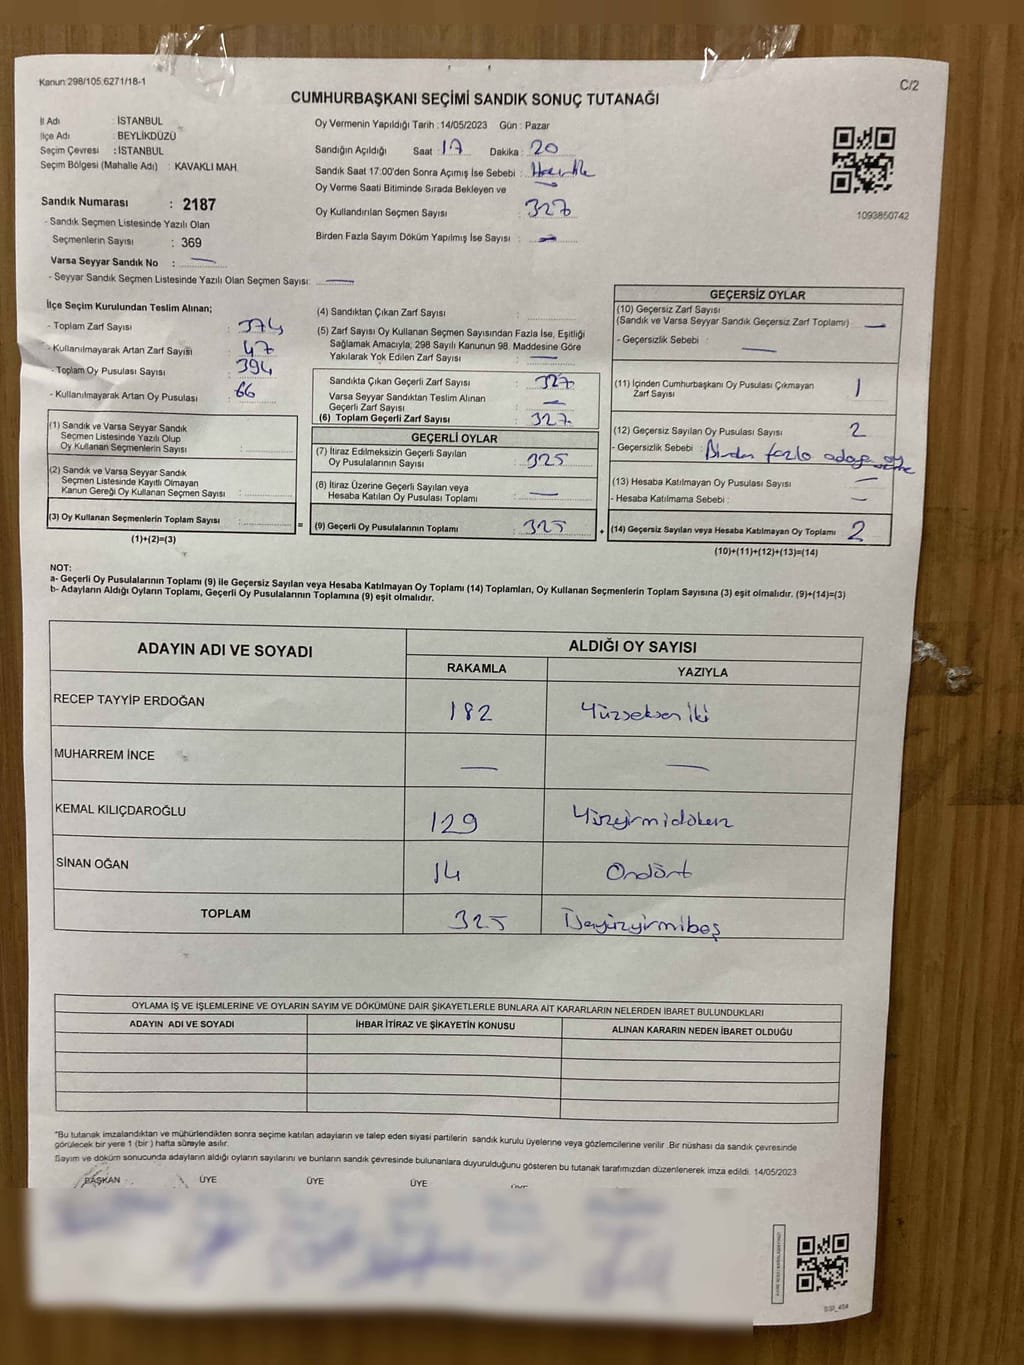 Kanun:298/105:6271/18-1
C/2
CUMHURBAŞKANI SEÇİMİ SANDIK SONUÇ TUTANAĞI
İl Adı : İSTANBUL
İlçe Adı : BEYLİKDÜZÜ
Seçim Çevresi : İSTANBUL
Seçim Bölgesi (Mahalle Adı) : KAVAKLI MAH.
Sandık Numarası : 2187
- Sandık Seçmen Listesinde Yazılı Olan
Seçmenlerin Sayısı : 369
Varsa Seyyar Sandık No : —
- Seyyar Sandık Seçmen Listesinde Yazılı Olan Seçmen Sayısı: —
Oy Vermenin Yapıldığı Tarih :14/05/2023 Gün : Pazar
Sandığın Açıldığı Saat 17 Dakika : 20
Sandık Saat 17:00'den Sonra Açımış İse Sebebi : Hazırlık
Oy Verme Saati Bitiminde Sırada Bekleyen ve
Oy Kullandırılan Seçmen Sayısı : 327
Birden Fazla Sayım Döküm Yapılmış İse Sayısı : —
1093850742
İlçe Seçim Kurulundan Teslim Alınan;
- Toplam Zarf Sayısı : 374
- Kullanılmayarak Artan Zarf Sayısı : 47
- Toplam Oy Pusulası Sayısı : 394
- Kullanılmayarak Artan Oy Pusulası : 66
(1) Sandık ve Varsa Seyyar Sandık
Seçmen Listesinde Yazılı Olup
Oy Kullanan Seçmenlerin Sayısı :
(2) Sandık ve Varsa Seyyar Sandık
Seçmen Listesinde Kayıtlı Olmayan
Kanun Gereği Oy Kullanan Seçmen Sayısı :
(3) Oy Kullanan Seçmenlerin Toplam Sayısı :
(1)+(2)=(3)
=
(4) Sandıktan Çıkan Zarf Sayısı :
(5) Zarf Sayısı Oy Kullanan Seçmen Sayısından Fazla İse, Eşitliği
Sağlamak Amacıyla, 298 Sayılı Kanunun 98. Maddesine Göre
Yakılarak Yok Edilen Zarf Sayısı : —
Sandıkta Çıkan Geçerli Zarf Sayısı : 327
Varsa Seyyar Sandıktan Teslim Alınan
Geçerli Zarf Sayısı : —
(6) Toplam Geçerli Zarf Sayısı : 327
GEÇERLİ OYLAR
(7) İtiraz Edilmeksizin Geçerli Sayılan
Oy Pusulalarının Sayısı : 325
(8) İtiraz Üzerine Geçerli Sayılan veya
Hesaba Katılan Oy Pusulası Toplamı : —
(9) Geçerli Oy Pusulalarının Toplamı : 325
+
GEÇERSİZ OYLAR
(10) Geçersiz Zarf Sayısı
(Sandık ve Varsa Seyyar Sandık Geçersiz Zarf Toplamı) —
- Geçersizlik Sebebi : —
(11) İçinden Cumhurbaşkanı Oy Pusulası Çıkmayan
Zarf Sayısı 1
(12) Geçersiz Sayılan Oy Pusulası Sayısı 2
- Geçersizlik Sebebi : Birden fazla adaya oy
(13) Hesaba Katılmayan Oy Pusulası Sayısı —
- Hesaba Katılmama Sebebi : —
(14) Geçersiz Sayılan veya Hesaba Katılmayan Oy Toplamı 2
(10)+(11)+(12)+(13)=(14)
NOT:
a- Geçerli Oy Pusulalarının Toplamı (9) ile Geçersiz Sayılan veya Hesaba Katılmayan Oy Toplamı (14) Toplamları, Oy Kullanan Seçmenlerin Toplam Sayısına (3) eşit olmalıdır. (9)+(14)=(3)
b- Adayların Aldığı Oyların Toplamı, Geçerli Oy Pusulalarının Toplamına (9) eşit olmalıdır.
ADAYIN ADI VE SOYADI ALDIĞI OY SAYISI
RAKAMLA YAZIYLA
RECEP TAYYİP ERDOĞAN 182 Yüzseksen iki
MUHARREM İNCE — —
KEMAL KILIÇDAROĞLU 129 Yüzyirmidokuz
SİNAN OĞAN 14 Ondört
TOPLAM 325 Üçyüzyirmibeş
OYLAMA İŞ VE İŞLEMLERİNE VE OYLARIN SAYIM VE DÖKÜMÜNE DAİR ŞİKAYETLERLE BUNLARA AİT KARARLARIN NELERDEN İBARET BULUNDUKLARI
ADAYIN ADI VE SOYADI İHBAR İTİRAZ VE ŞİKAYETİN KONUSU ALINAN KARARIN NEDEN İBARET OLDUĞU
*Bu tutanak imzalandıktan ve mühürlendikten sonra seçime katılan adayların ve talep eden siyasi partilerin sandık kurulu üyelerine veya gözlemcilerine verilir. Bir nüshası da sandık çevresinde
görülecek bir yere 1 (bir) hafta süreyle asılır.
Sayım ve döküm sonucunda adayların aldığı oyların sayılarını ve bunların sandık çevresinde bulunanlara duyurulduğunu gösteren bu tutanak tarafımızdan düzenlenerek imza edildi. 14/05/2023
BAŞKAN ÜYE ÜYE ÜYE